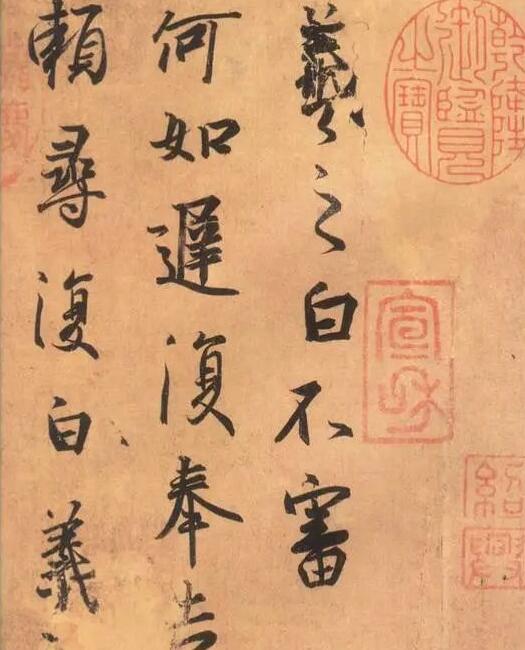 乾隆御覽之寶
宣和
紹興
羲之白不審
何如遲復奉告
賴尋復白羲